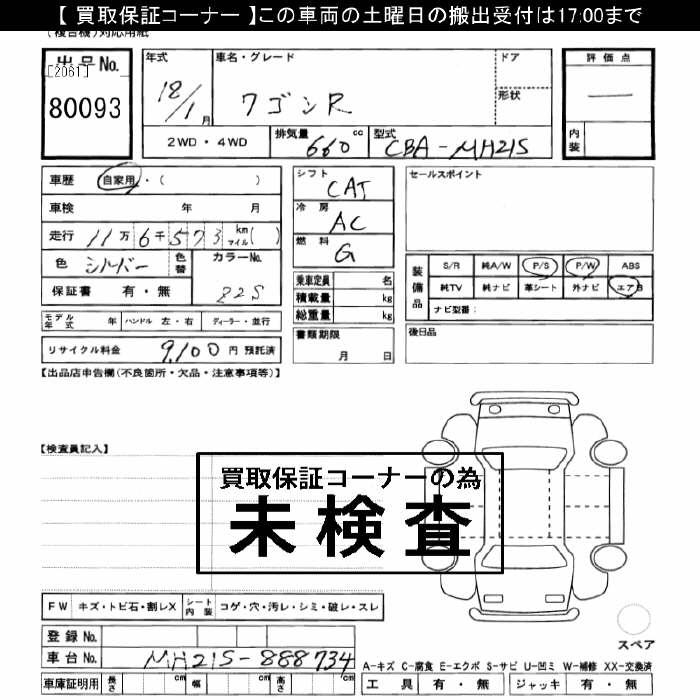 【 買取保証コーナー 】この車両の土曜日の搬出受付は17:00まで
(複合機)対応用紙
出品No.
[2061]
80093
年式
18/1月
車名・グレード
ワゴンR
ドア
形状
評価点
—
内装
2WD・4WD
排気量 660 cc
型式 CBA-MH21S
車歴 自家用・( )
車検 年 月
走行 11万6千573 km マイル( )
色 シルバー 色替
カラーNo. Z2S
保証書 有・無
シフト CAT
冷房 AC
燃料 G
乗車定員 名
積載量 kg
総重量 kg
セールスポイント
装備品
S/R 純A/W P/S P/W ABS
純TV 純ナビ 革シート 外ナビ エアB
ナビ型番:
モデル年式 年 ハンドル 左・右 ディーラー・並行
書類期限 月 日
後日品
リサイクル料金 9,100 円 預託済
【出品店申告欄(不良箇所・欠品・注意事項等)】
【検査員記入】
買取保証コーナーの為
未検査
FW キズ・トビ石・割レX シート内装 コゲ・穴・汚レ・シミ・破レ・スレ
スペア
登録No.
車台No. MH21S-888734
A-キズ C-腐食 E-エクボ S-サビ U-凹ミ W-補修 XX-交換済
車庫証明用 長さ cm 幅 cm 高さ cm
工具 有・無 ジャッキ 有・無